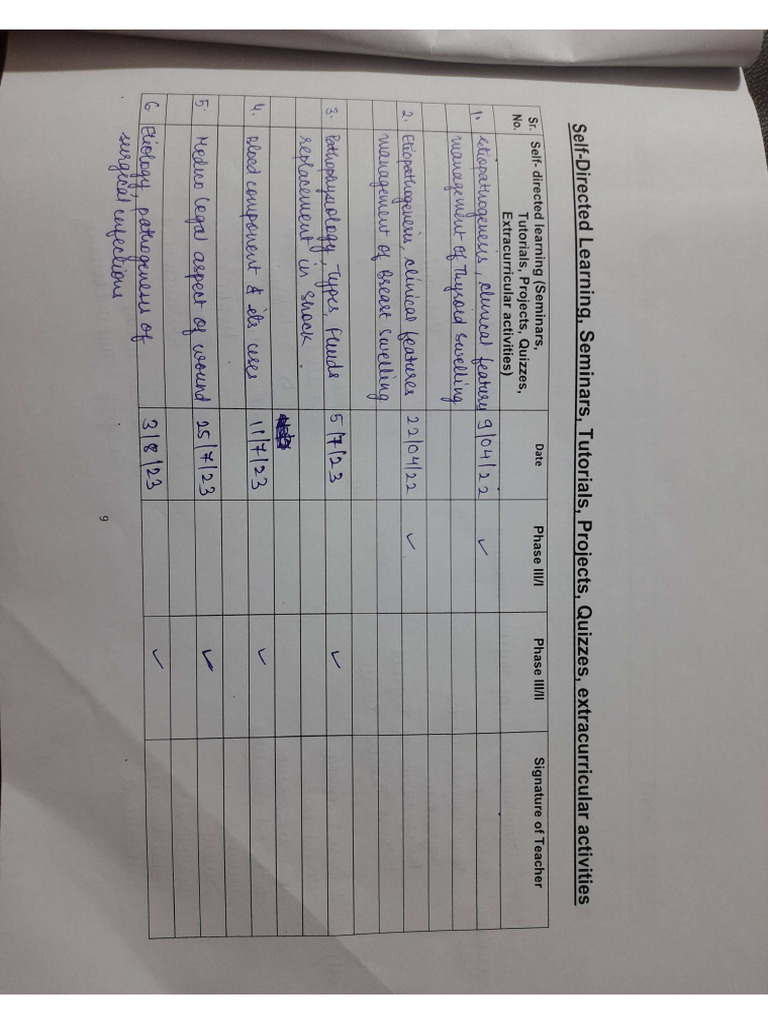 Self-Directed Learning, Seminars, Tutorials, Projects, Quizzes, extracurricular activities
Sr. No. Self- directed learning (Seminars, Tutorials, Projects, Quizzes, Extracurricular activities) Date Phase III/I Phase III/II Signature of Teacher
1. etiopathogenesis, clinical feature 9/04/22 ✓
management of Thyroid swelling
2. Etiopathogenesis, clinical features 22/04/22 ✓
management of Breast swelling
3. Pathophysiology, Types, Fluids 5/7/23 ✓
replacement in shock
4. Blood component & its uses 11/7/23 ✓
5. Medico legal aspect of wound 25/7/23 ✓
6. Etiology, pathogenesis of 3/8/23 ✓
surgical infections
9